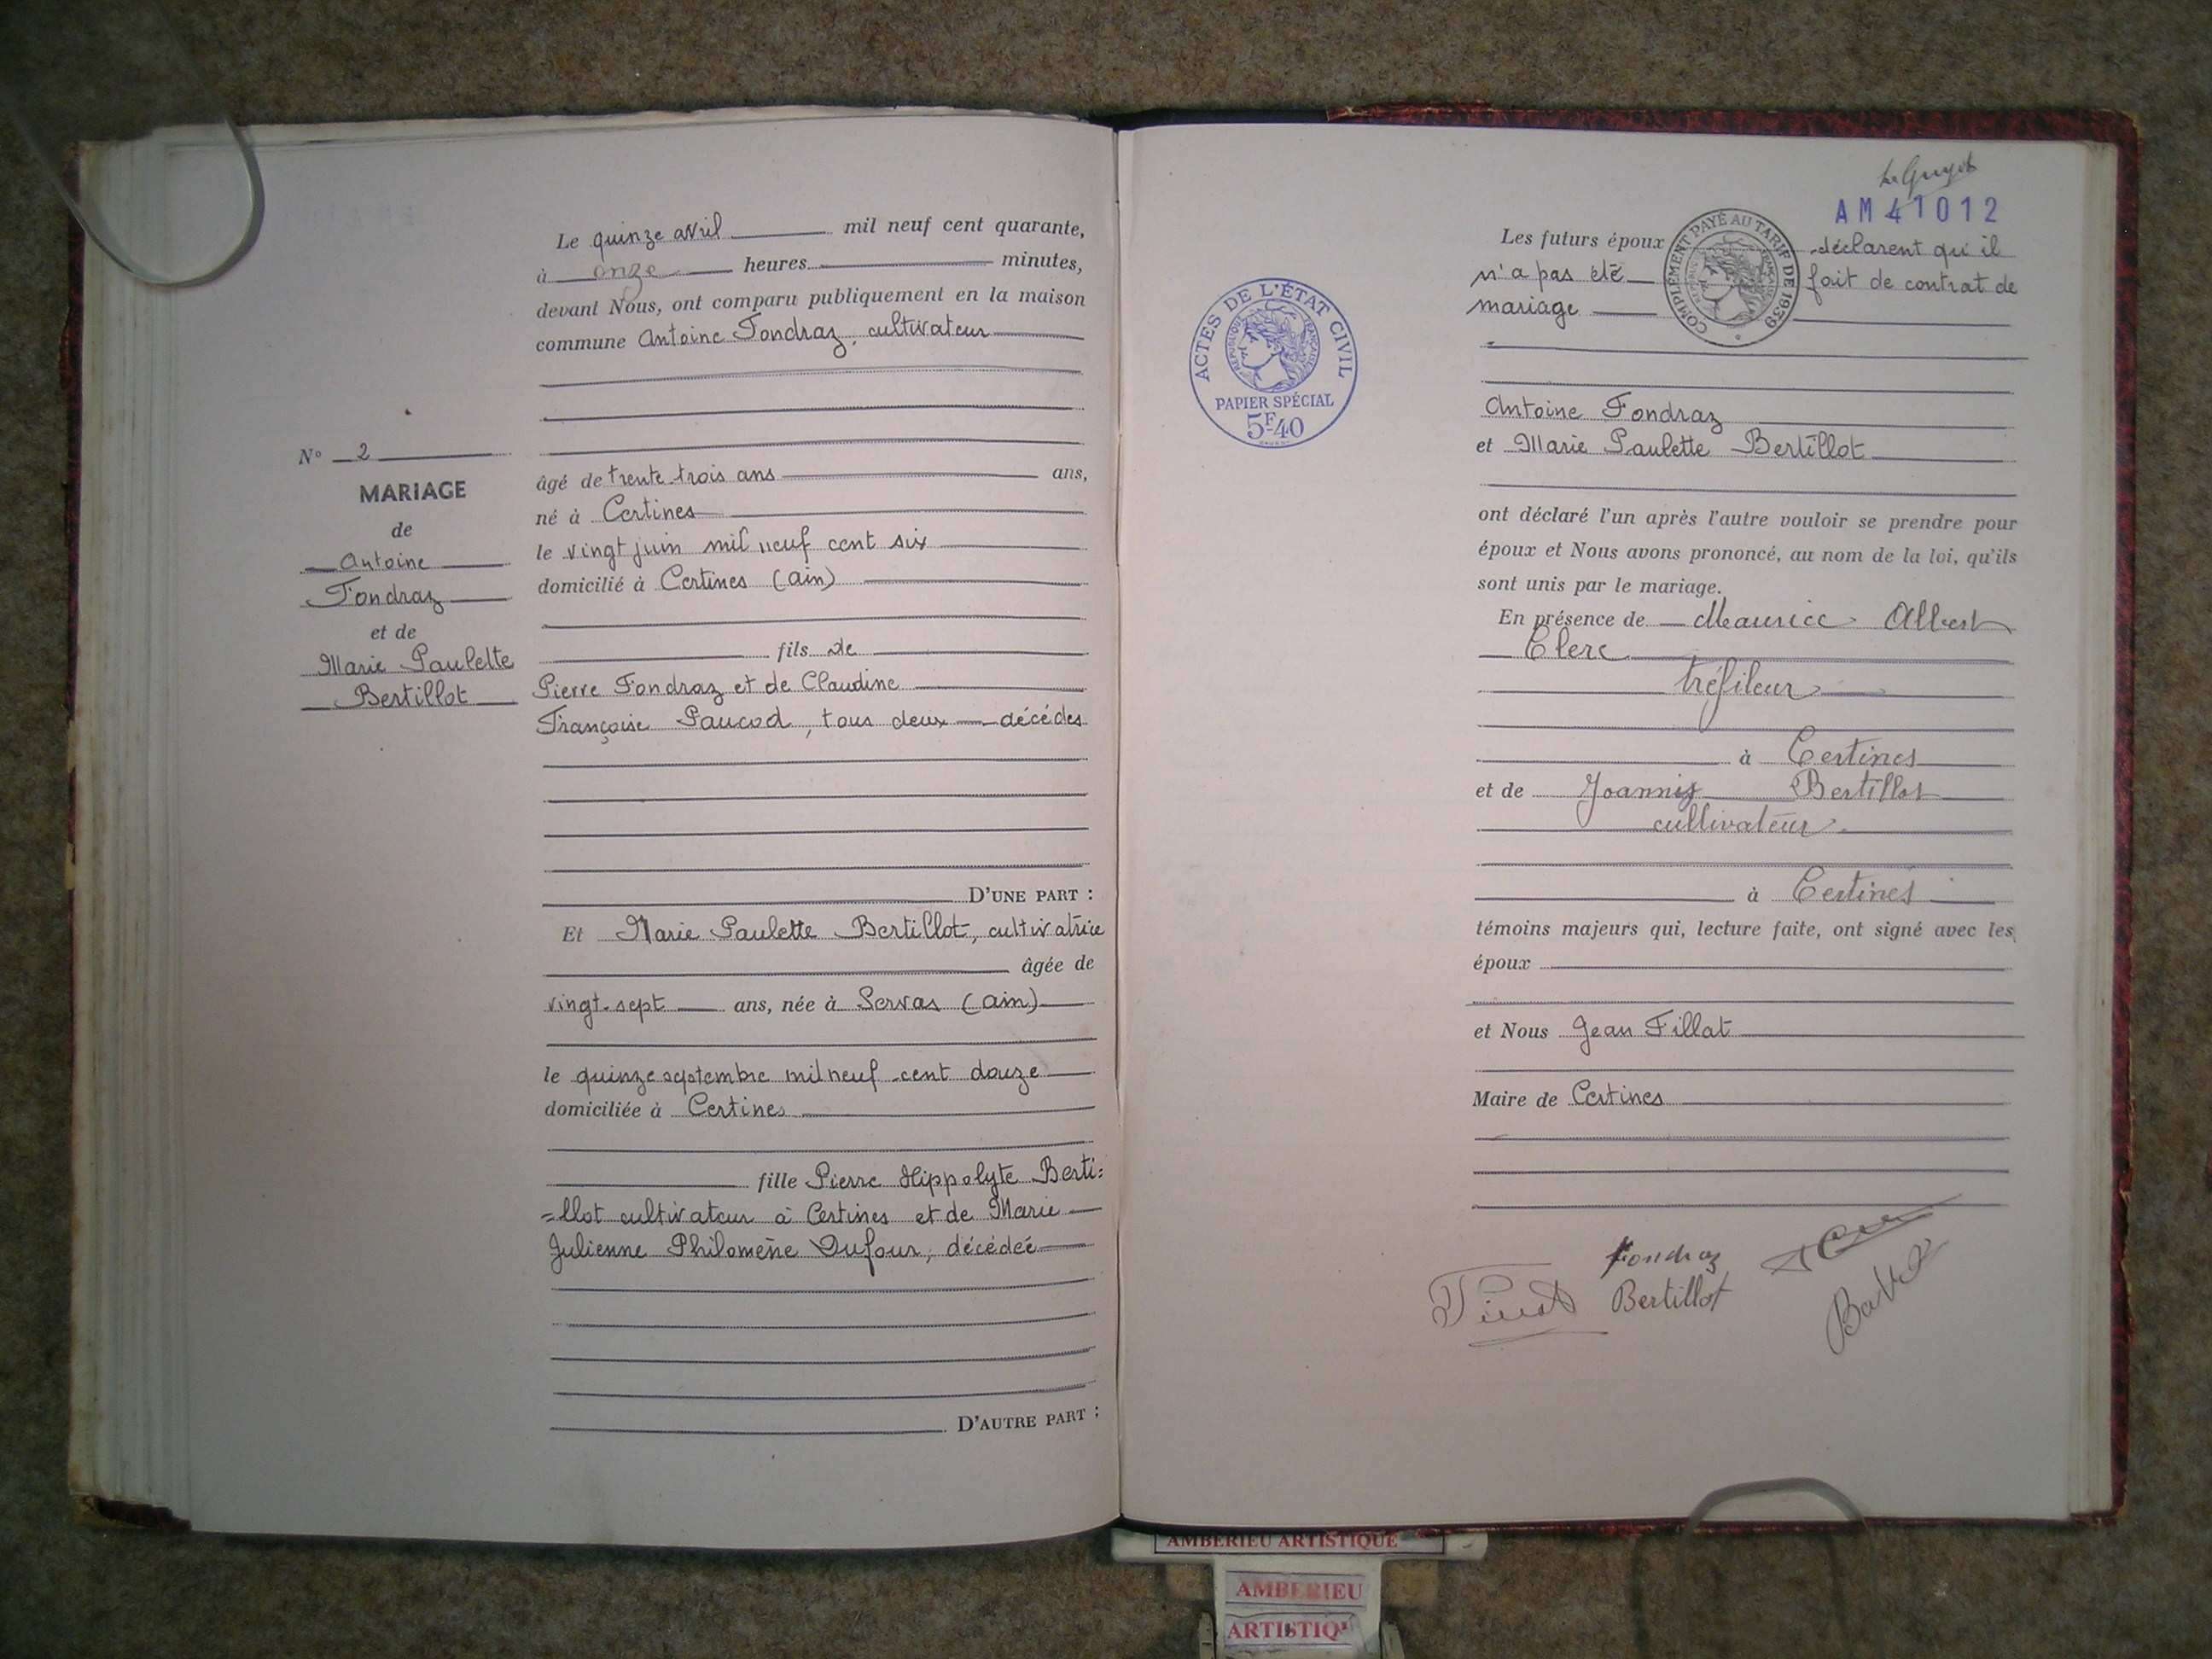 Le quinze avril mil neuf cent quarante,
à onze heures minutes,
devant Nous, ont comparu publiquement en la maison
commune Antoine Fondraz, cultivateur
N° 2
MARIAGE
de
Antoine
Fondraz
et de
Marie Paulette
Bertillot
âgé de trente-trois ans ans,
né à Certines
le vingt juin mil neuf cent six
domicilié à Certines (ain)
fils de
Pierre Fondraz et de Claudine
Françoise Paucod, tous deux décédés
D'UNE PART :
Et Marie Paulette Bertillot, cultivatrice
âgée de
vingt-sept ans, née à Servas (ain)
le quinze septembre mil neuf cent douze
domiciliée à Certines
fille Pierre Hippolyte Berti=
=llot cultivateur à Certines et de Marie
Julienne Philomène Dufour, décédée
D'AUTRE PART :
AM 41012
Les futurs époux déclarent qu'il
n'a pas été fait de contrat de
mariage
COMPLÉMENT PAYÉ AU TARIF DE 1939
ACTES DE L'ÉTAT CIVIL
RÉPUBLIQUE FRANÇAISE
PAPIER SPÉCIAL
5F40
Antoine Fondraz
et Marie Paulette Bertillot
ont déclaré l'un après l'autre vouloir se prendre pour
époux et Nous avons prononcé, au nom de la loi, qu'ils
sont unis par le mariage.
En présence de Maurice Albert
Clerc
tréfileur
à Certines
et de Joannis Bertillot
cultivateur
à Certines
témoins majeurs qui, lecture faite, ont signé avec les
époux
et Nous Jean Fillat
Maire de Certines
Fondraz
Bertillot
AMBERIEU ARTISTIQUE
AMBERIEU
ARTISTIQ